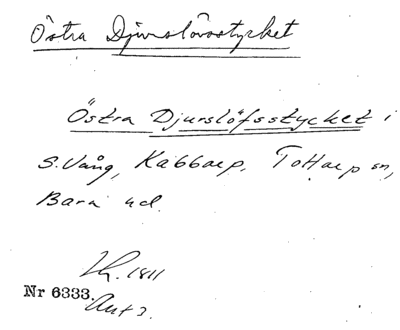 Östra Djurslövsstycket
Östra Djurslöfsstycket i
S. Vång, Kabbarp, Tottarp sn,
Bara hd.
Lh. 1811
Nr 6333.
Akt 2.